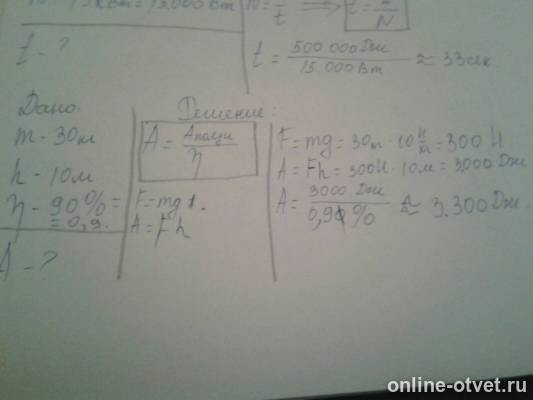 N = 15кВт = 15000 Вт
t - ?
t = 500 000 Дж / 15 000 Вт ≈ 33 сек
Дано:
m - 30кг
h - 10м
η - 90% =
= 0,9.
A - ?
Решение:
A = Aполезн / η
F = mg
A = Fh
F = mg = 30кг · 10 Н/м = 300 Н
A = Fh = 300Н · 10м = 3000 Дж
A = 3000 Дж / 0,90 % ≈ 3.300 Дж.
online-otvet.ru